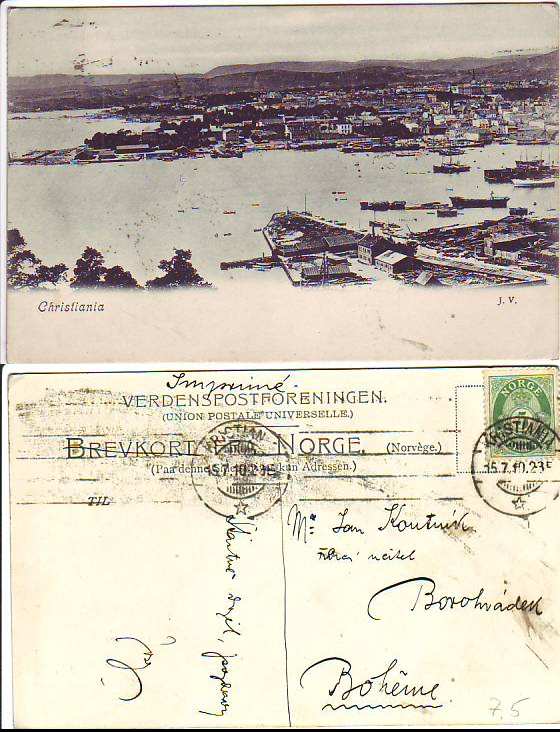 Christiania
J. V.
Imprimé
VERDENSPOSTFORENINGEN.
(UNION POSTALE UNIVERSELLE.)
BREVKORT NORGE. (Norvège.)
(Paa denne Side kan Adressen.)
TIL
NORGE
KRISTIANIA
15.7.10.23E
KRISTIANIA
15.7.10.23E
Mr. Jan Koutník
učitel
Borohrádek
Bohême
7.5